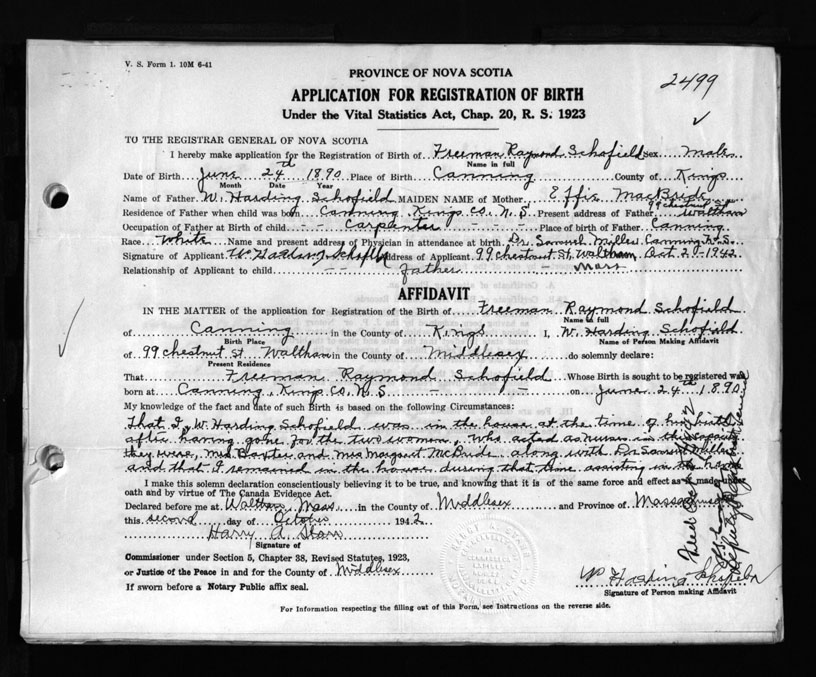 V. S. Form 1. 10M 6-41
2499
PROVINCE OF NOVA SCOTIA
APPLICATION FOR REGISTRATION OF BIRTH
Under the Vital Statistics Act, Chap. 20, R. S. 1923
TO THE REGISTRAR GENERAL OF NOVA SCOTIA
I hereby make application for the Registration of Birth of Freeman Raymond Schofield sex Male
Name in full
Date of Birth June 24th 1890 Place of Birth Canning County of Kings
Month Date Year
Name of Father W. Harding Schofield MAIDEN NAME of Mother Effie MacBride
99 Chestnut St
Residence of Father when child was born Canning Kings Co. N. S. Present address of Father Waltham
Occupation of Father at Birth of child Carpenter Place of birth of Father Canning
Race White Name and present address of Physician in attendance at birth Dr. Samuel Miller Canning N. S.
Signature of Applicant Wm Harding Schofield Address of Applicant 99 Chestnut St. Waltham, Oct 2 1942
Relationship of Applicant to child father Mass
AFFIDAVIT
IN THE MATTER of the application for Registration of the Birth of Freeman Raymond Schofield
Name in full
of Canning in the County of Kings I, W. Harding Schofield
Birth Place Name of Person Making Affidavit
of 99 Chestnut St Waltham in the County of Middlesex do solemnly declare:
Present Residence
That Freeman Raymond Schofield Whose Birth is sought to be registered was
born at Canning, Kings Co. N. S. on June 24th 1890
My knowledge of the fact and date of such Birth is based on the following Circumstances:
That I, W. Harding Schofield was in the house at the time of his birth
after having gone for the two women, who acted as nurses in this capacity
they were, Mrs Baxter and Mrs Margaret McBride along with Dr Samuel Miller
and that I remained in the house during that time assisting in the
I make this solemn declaration conscientiously believing it to be true, and knowing that it is of the same force and effect as if made under
oath and by virtue of The Canada Evidence Act.
Declared before me at Waltham, Mass in the County of Middlesex and Province of Massachusetts
this second day of October 1942
Harry A.
Signature of
Commissioner under Section 5, Chapter 38, Revised Statutes, 1923,
or Justice of the Peace in and for the County of Middlesex
If sworn before a Notary Public affix seal.
W Harding Schofield
Signature of Person making Affidavit
For Information respecting the filling out of this Form, see Instructions on the reverse side.